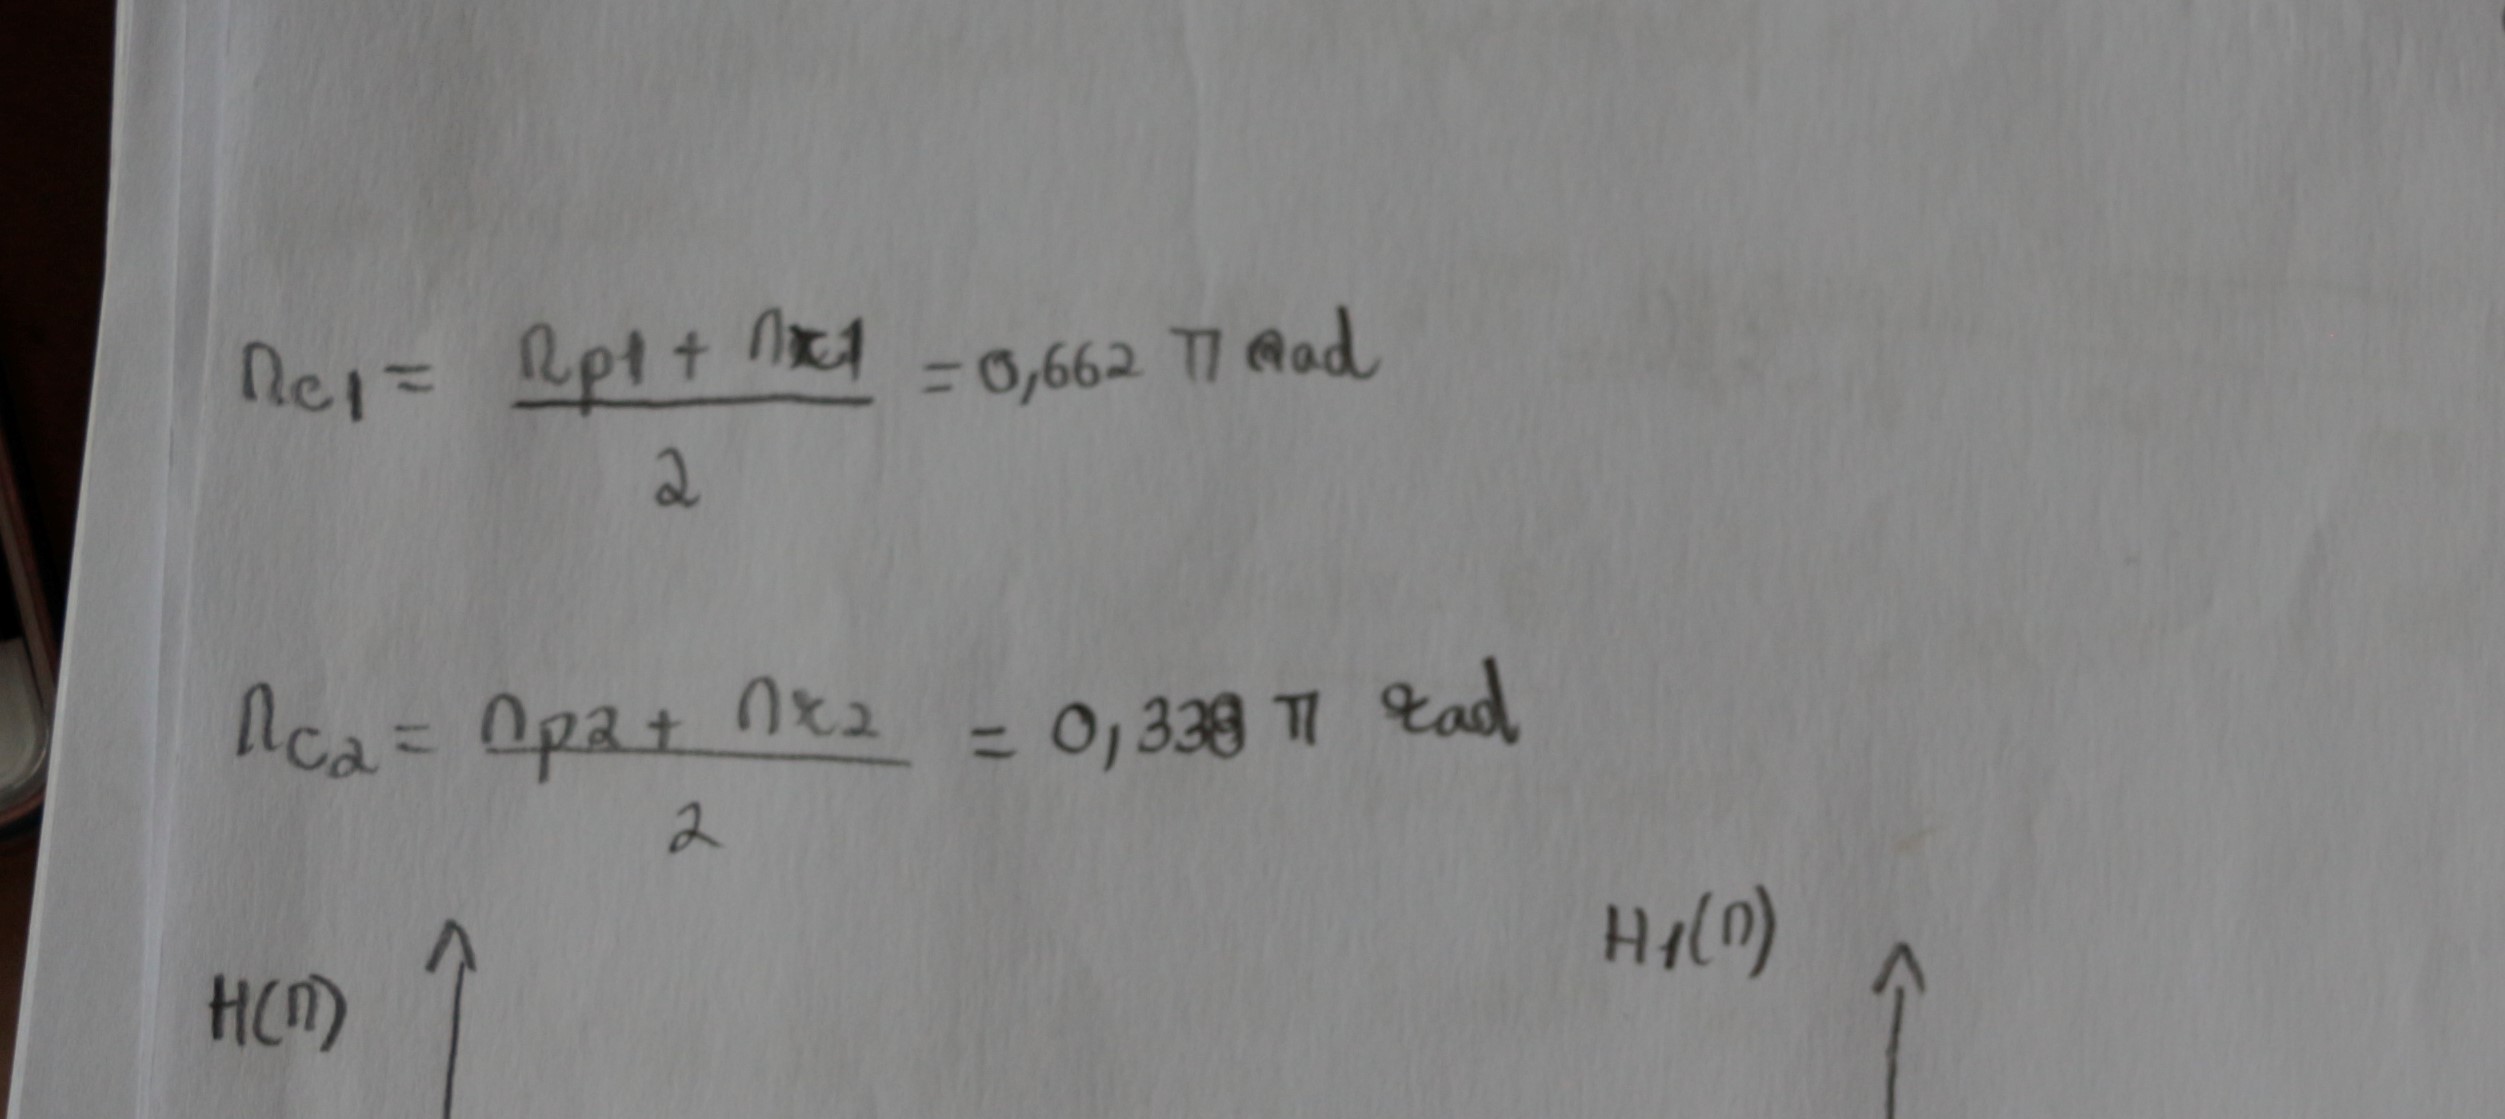 Ωc1 = Ωp1 + Ωx1 / 2 = 0,662 π rad
Ωc2 = Ωp2 + Ωx2 / 2 = 0,338 π rad
H1(Ω)
H(Ω)